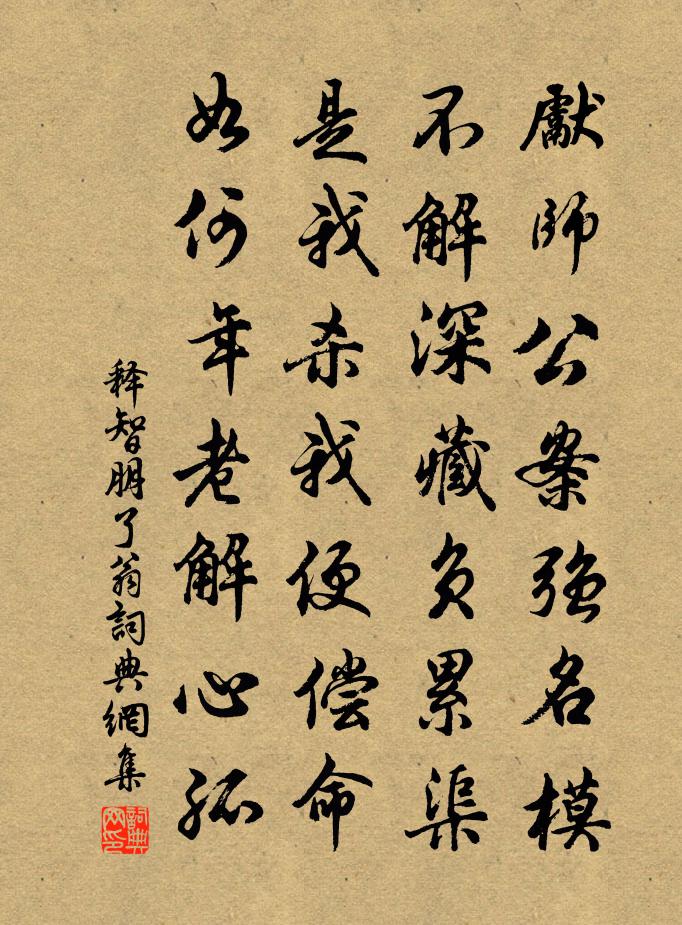 獻師公案強名模
不解深藏負累渠
是我杀我便偿命
如何年老解心孤
释智朋了翁詞典網集
詞典網印